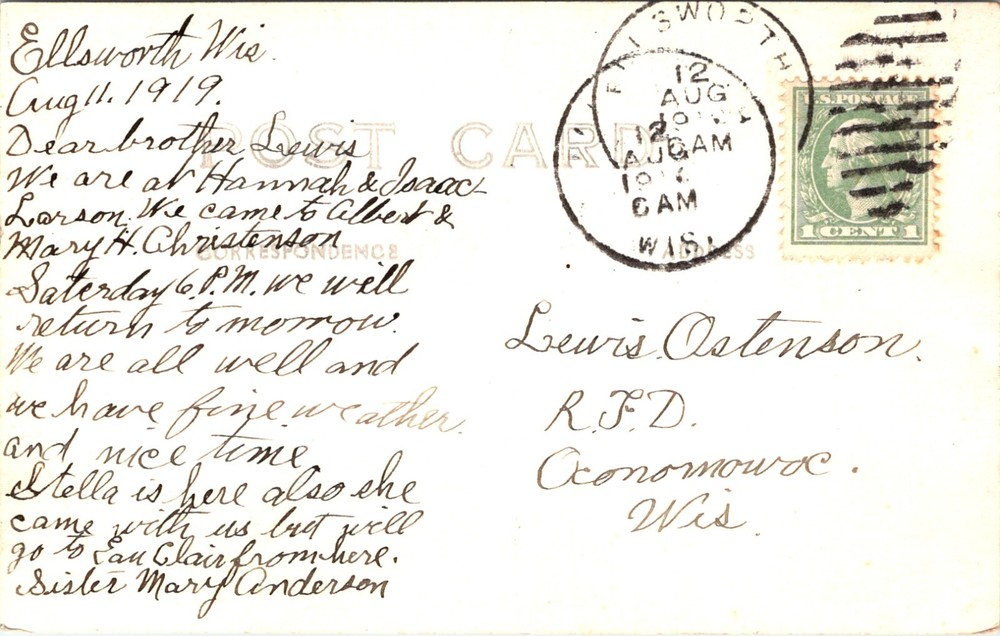 Ellsworth Wis.
Aug 11. 1919.
Dear brother Lewis
We are at Hannah & Isaac
Larson. We came to Albert &
Mary H. Christenson
Saterday 6. P.M. we will
return to morrow.
We are all well and
we have fine weather.
and nice time
Stella is here also she
came with us but will
go to Eau Clair from here.
Sister Mary Anderson
POST CARD
CORRESPONDENCE
ADDRESS
ELLSWORTH
12
AUG
6AM
12
AUG
6AM
WIS.
U.S. POSTAGE
1 CENT 1
Lewis Ostenson.
R.F.D.
Oconomowoc.
Wis